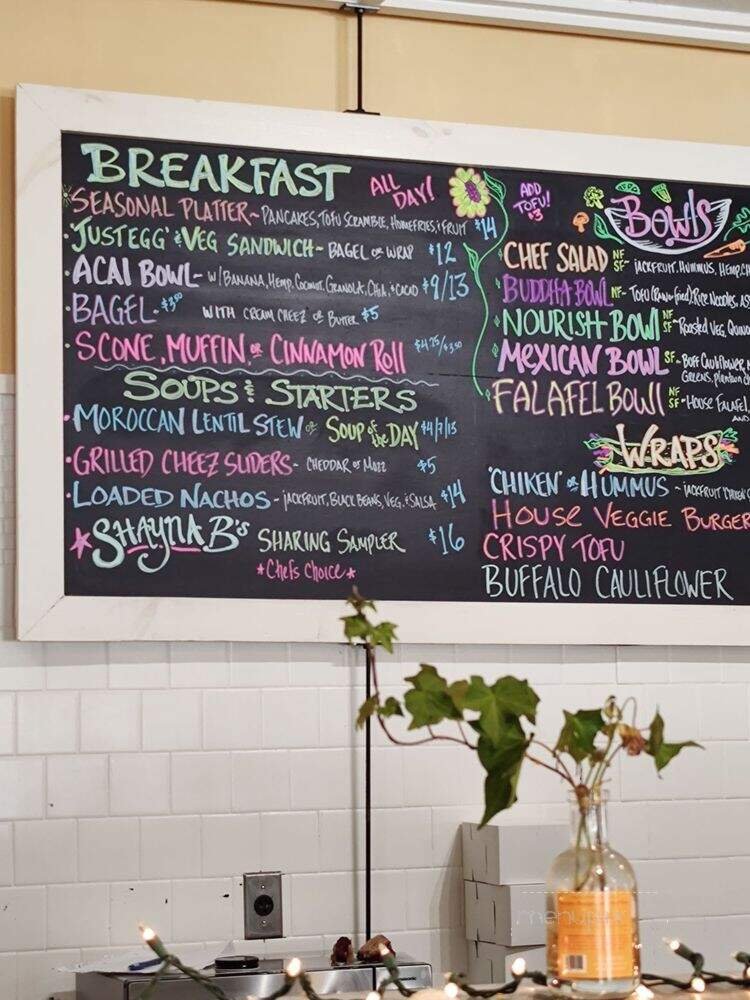 BREAKFAST ALL DAY!
SEASONAL PLATTER ~ PANCAKES, TOFU SCRAMBLE, HOMEFRIES, & FRUIT $14
'JUST EGG' & VEG SANDWICH - BAGEL OR WRAP $12
ACAI BOWL - W/BANANA, HEMP, COCONUT, GRANOLA, CHIA, & CACAO $9/13
BAGEL - $3.50 WITH CREAM CHEEZ OR BUTTER $5
SCONE, MUFFIN, OR CINNAMON ROLL $4.25/$3.50
SOUPS & STARTERS
MOROCCAN LENTIL STEW OR SOUP of the DAY $4/7/13
GRILLED CHEEZ SLIDERS - CHEDDAR OR MOZZ $5
LOADED NACHOS - JACKFRUIT, BLACK BEANS, VEG, & SALSA $14
SHAYNA B's SHARING SAMPLER $16
*Chefs Choice*
ADD TOFU! $3
BOWLS
CHEF SALAD NF SF - JACKFRUIT, HUMMUS, HEMP
BUDDHA BOWL NF - TOFU (RAW OR FRIED), RICE NOODLES,
NOURISH BOWL NF SF - ROASTED VEG, QUINO
MEXICAN BOWL SF - BUFF CAULIFLOWER,
GREENS, PLANTAIN
FALAFEL BOWL NF SF - HOUSE FALAFEL
AND
WRAPS
'CHIKEN' OR HUMMUS ~ JACKFRUIT 'CHIKEN'
HOUSE VEGGIE BURGER
CRISPY TOFU
BUFFALO CAULIFLOWER